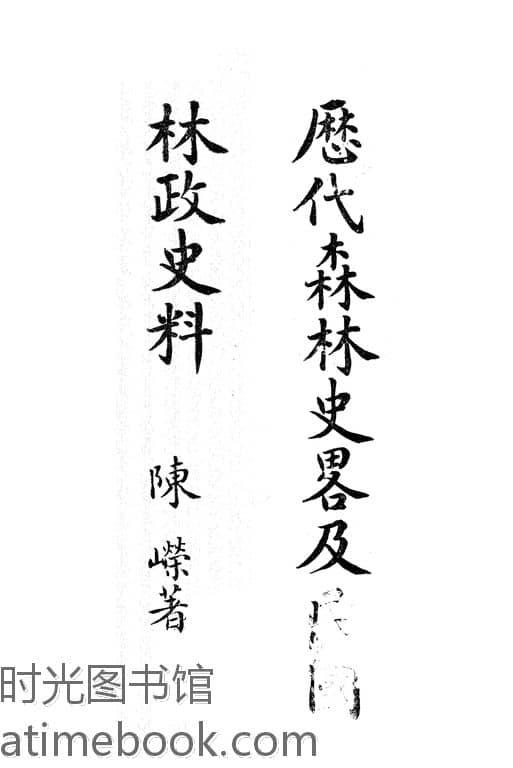 歷代森林史畧及民國
林政史料
陳嶸著
时光图书馆
atimebook.com